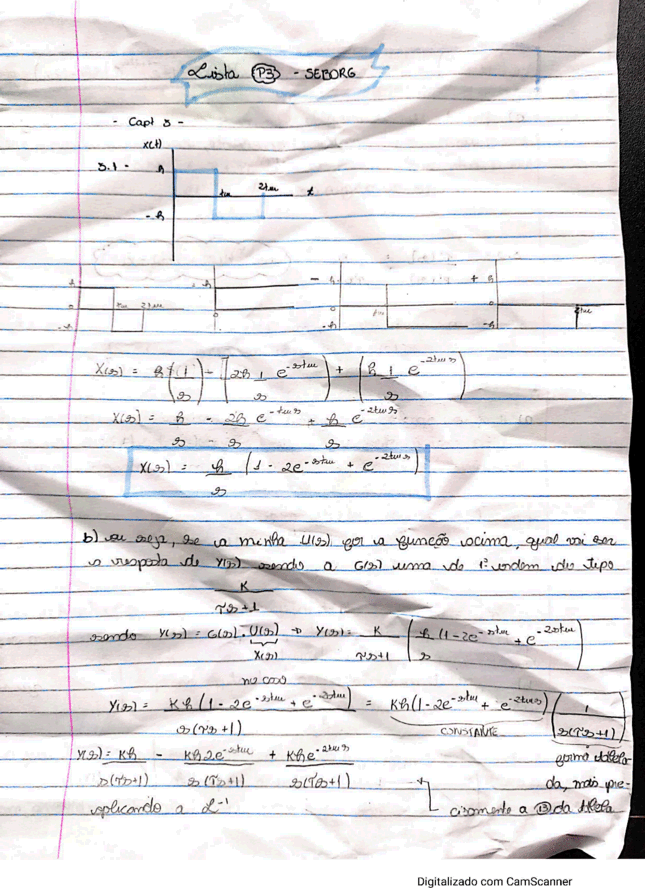 Lista P3 - SEBORG
- Capt 3 -
x(t)
3.1 - h
tw 2tw t
- h
h - h - h + h
tw 2tw
0 0 0 0
-h tw -h -h 2tw
X(s) = h (1/s) - [2h 1/s e^-stw) + (h 1/s e^-2tws)
X(s) = h/s - 2h/s e^-tws + h/s e^-2tws
X(s) = h/s (1 - 2e^-stw + e^-2tws)
b) ou seja, se a minha U(s) for a função acima, qual vai ser
a resposta de Y(s) sendo a G(s) uma de 1ª ordem do tipo
K/τs+1
sendo Y(s) = G(s) . U(s) → Y(s) = K/τs+1 (h/s (1-2e^-stw + e^-2stw)
X(s)
no caso
Y(s) = Kh(1-2e^-stw + e^-2stw)/s(τs+1) = Kh(1-2e^-stw + e^-2tws) (1/s(τs+1))
CONSTANTE
Y(s) = Kh/s(τs+1) - Kh2e^-stw/s(τs+1) + Khe^-2tws/s(τs+1) forma tabela
da, mais pre-
aplicando a L^-1 cisamente a 13 da tabela
Digitalizado com CamScanner